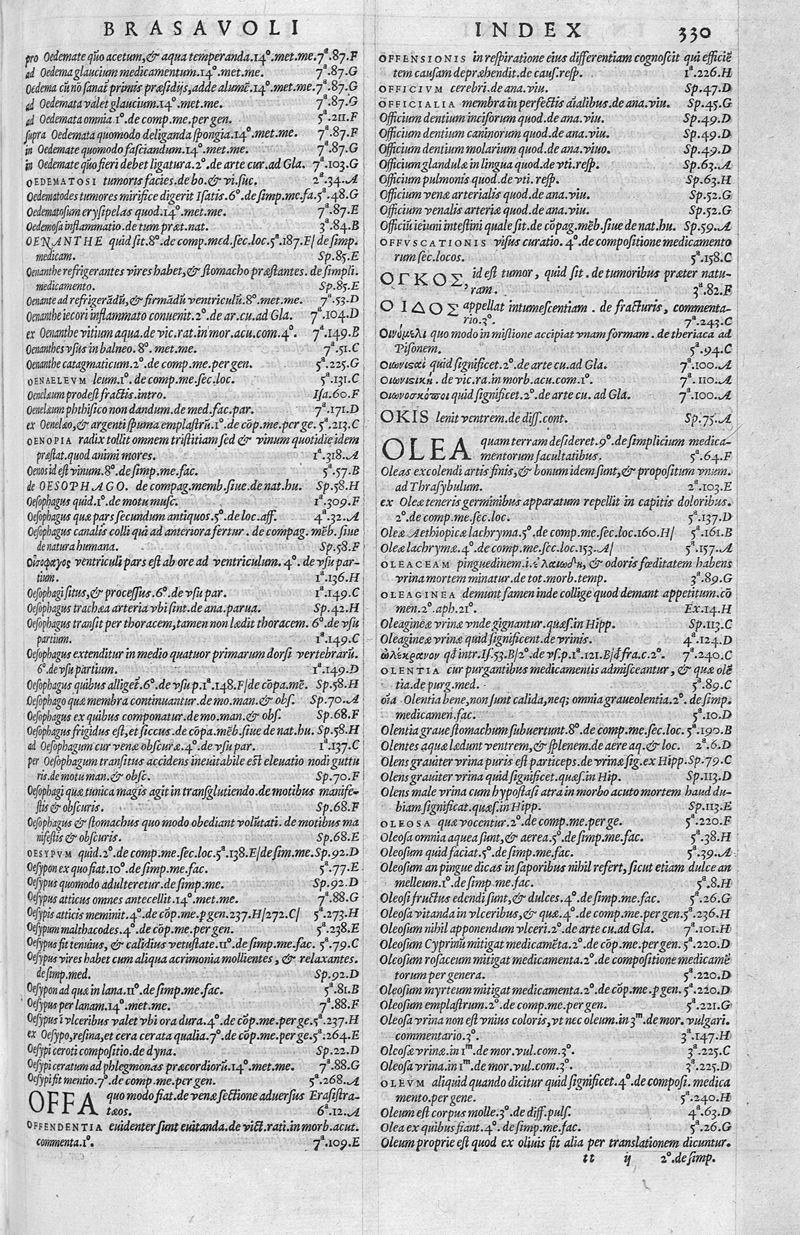 BRASAVOLI INDEX 330
pro Oedemate quo acetum, & aqua temperanda.14º.met.me. 7ª.87.F
ad Oedema glaucium medicamentum.14º.met.me. 7ª.87.G
Oedema cũ nõ sanat̃ primis præsidijs, adde alumẽ.14º.met.me. 7ª.87.G
ad Oedemata valet glaucium.14º.met.me. 7ª.87.G
ad Oedemata omnia 1º.de comp.me per gen. 5ª.211.F
supra Oedemata quomodo deliganda spongia.14º.met.me. 7ª.87.F
in Oedemate quomodo fasciandum.14º.met.me. 7ª.87.G
in Oedemate quo fieri debet ligatura.2º.de arte cur.ad Gla. 7ª.103.G
OEDEMATOSI tumoris facies.de bo.& vi.suc. 2ª.34.A
Oedematodes tumores mirifice digerit Isatis.6º.de simp.me.fa. 5ª.48.G
Oedematosum erysipelas quod.14º.met.me. 7ª.87.E
Oedemosa inflammatio.de tum præt.nat. 3ª.84.B
OENANTHE quid sit.8º.de comp.med.sec.loc.5ª.187.E/de simp.
medicam. Sp.85.E
Oenanthe refrigerantes vires habet, & stomacho præstantes. de simpli.
medicamento. Sp.85.E
Oenante ad refrigerãdũ, & firmãdũ ventriculũ.8º.met.me. 7ª.53.D
Oenanthe iecori inflammato conuenit.2º.de ar.cu.ad Gla. 7ª.104.D
ex Oenanthe vitium aqua.de vic.rat.in mor.acu.com.4º. 7ª.149.B
Oenanthes vsus in balneo.8º.met.me. 7ª.51.C
Oenanthe catagmaticum.2º.de comp.me per gen. 5ª.225.G
OENAELEVM leum.1º.de comp.me sec.loc. 5ª.131.C
Oenelæum prodest fractis.intro. Isa.60.F
Oenelæum phthisico non dandum.de med.fac.par. 7ª.171.D
ex Oenelæo, & argenti spuma emplastrũ.1º.de cõp.me per ge. 5ª.213.C
OENOPIA radix tollit omnem tristitiam sed & vinum quotidie idem
præstat.quod animi mores. 1ª.318.A
Oenos id est vinum.8º.de simp.me.fac. 5ª.57.B
de OESOPHAGO. de compag.memb.siue de nat.hu. Sp.58.H
Oesophagus quid.1º.de motu musc. 1ª.309.F
Oesophagus quæ pars secundum antiquos.5º.de loc.aff. 4ª.32.A
Oesophagus canalis colli qui ad anteriora fertur. de compag. mẽb.siue
de natura humana. Sp.58.F
Οἰσοφαγος ventriculi pars est ab ore ad ventriculum.4º.de vsu par-
tium. 1ª.136.H
Oesophagi situs, & processus.6º.de vsu par. 1ª.149.C
Oesophagus trachæa arteria vbi sint.de ana.parua. Sp.42.H
Oesophagus transit per thoracem, tamen non lædit thoracem.6º.de vsu
partium. 1ª.149.C
Oesophagus extenditur in medio quatuor primarum dorsi vertebrarũ.
6º.de vsu partium. 1ª.149.D
Oesophagus quibus alliget̃.6º.de vsu p.1ª.148.F/de cõpa.mẽ. Sp.58.H
Oesophago quæ membra continuantur.de mo.man.& obs. Sp.70.A
Oesophagus ex quibus componatur.de mo.man.& obs. Sp.68.F
Oesophagus frigidus est, et siccus.de cõpa.mẽb.siue de nat.hu. Sp.58.H
ad Oesophagum cur venæ obscuræ.4º.de vsu par. 1ª.137.C
per Oesophagum transitus accidens ineuitabile est eleuatio nodi guttu
ris.de motu man.& obsc. Sp.70.F
Oesophagi quæ tunica magis agit in transglutiendo.de motibus manife-
stis & obscuris. Sp.68.F
Oesophagus & stomachus quo modo obediant volũtati. de motibus ma
nifestis & obscuris. Sp.68.E
OESYPVM quid.2º.de comp.me.sec.loc.5ª.138.E/de sim.me. Sp.92.D
Oesypon ex quo fiat.10º.de simp.me.fac. 5ª.77.E
Oesypus quomodo adulteretur.de simp.me. Sp.92.D
Oesypus atticus omnes antecellit.14º.met.me. 7ª.88.G
Oesypis atticis meminit.4º.de cõp.me.p gen.237.H/272.C/ 5ª.273.H
Oesypum malthacodes.4º.de cõp.me.per gen. 5ª.238.E
Oesypus fit tenuius, & calidius vetustate.11º.de simp.me.fac. 5ª.79.C
Oesypus vires habet cum aliqua acrimonia mollientes, & relaxantes.
de simp.med. Sp.92.D
Oesypon ad quæ in lana.11º.de simp.me.fac. 5ª.81.B
Oesypus per lanam.14º.met.me. 7ª.88.F
Oesypus ĩ vlceribus valet vbi ora dura.4º.de cõ.me.per ge. 5ª.237.H
ex Oesypo, resina, et cera cerata qualia.7º.de cõp.me.per ge. 5ª.264.E
Oesypi ceroti compositio.de dyna. Sp.22.D
Oesypi ceratum ad phlegmonas præcordiorũ.14º.met.me. 7ª.88.G
Oesypi fit mentio.7º.de comp.me.per gen. 5ª.268.A
OFFA quo modo fiat.de venæ sectione aduersus Erasistra-
tæos. 6ª.12.A
OFFENDENTIA euidenter sunt euitanda.de vict.rati.in morb.acut.
commenta.1º. 7ª.109.E
OFFENSIONIS in respiratione eius differentiam cognoscit qui efficiẽ
tem causam depræhendit.de caus.resp. 1ª.226.H
OFFICIVM cerebri.de ana.viu. Sp.47.D
OFFICIALIA membra in perfectis aĩalibus.de ana.viu. Sp.45.G
Officium dentium inciforum quod.de ana.viu. Sp.49.D
Officium dentium caninorum quod.de ana.viu. Sp.49.D
Officium dentium molarium quod.de ana.viuo. Sp.49.D
Officium glandulæ in lingua quod.de vti.resp. Sp.63.A
Officium pulmonis quod.de vti.resp. Sp.63.H
Officium venæ arterialis quod.de ana.viu. Sp.52.G
Officium venalis arteriæ quod.de ana.viu. Sp.52.G
Officiũ ieiuni intestini quale sit.de cõpag.mẽb.siue de nat.hu. Sp.59.A
OFFVSCATIONIS visus curatio.4º.de compositione medicamento
rum sec.locos. 5ª.158.C
ΟΓΚΟΣ id est tumor, quid sit.de tumoribus præter natu-
ram. 3ª.82.F
ΟΙΔΟΣ appellat intumescentiam.de fracturis, commenta-
rio.3º. 7ª.243.C
Οἰνόμελι quo modo in mistione accipiat vnam formam.de theriaca ad
Pisonem. 5ª.94.C
quid significet.2º.de arte cu.ad Gla. 7ª.100.A
de vic.ra.in morb.acu.com.1º. 7ª.110.A
quid significet.2º.de arte cu.ad Gla. 7ª.100.A
OKIS lenit ventrem.de diss.cont. Sp.75.A
OLEA quam terram desideret.9º.de simplicium medica-
mentorum facultatibus. 5ª.64.F
Oleas excolendi artis finis, & bonum idem sunt, & propositum vnum.
ad Thrasybulum. 2ª.103.E
ex Oleæ teneris germinibus apparatum repellit in capitis doloribus.
2º.de comp.me.sec.loc. 5ª.137.D
Oleæ Aethiopicæ lachryma.5º.de comp.me.sec.loc.160.H/ 5ª.161.B
Oleæ lachrymæ.4º.de comp.me.sec.loc.153.A/ 5ª.157.A
OLEACEAM pinguedinem.i. & odoris fœditatem habens
vrina mortem minatur.de tot.morb.temp. 3ª.89.G
OLEAGINEA demunt famen inde collige quod demant appetitum.cõ
men.2º.aph.21º. Ex.14.H
Oleagineæ vrinæ vnde gignantur.quæs.in Hipp. Sp.113.C
Oleagineæ vrinæ quid significent.de vrinis. 4ª.124.D
ὠλέκρανον qđ intr.Is.53.B/2º.de vs.p.1ª.121.E/đ fra.c.2º. 7ª.240.C
OLENTIA cur purgantibus medicamentis admisceantur, & quæ olẽ
tia.de purg.med. 5ª.89.C
oĩa Olentia bene, non sunt calida, neq; omnia graueolentia.2º.de simp.
medicamen.fac. 5ª.10.D
Olentia graue stomachum subuertunt.8º.de comp.me.sec.loc. 5ª.190.B
Olentes aquæ lædunt ventrem, & splenem.de aere aq.& loc. 2ª.6.D
Olens grauiter vrina puris est particeps.de vrinæ sig.ex Hipp. Sp.79.C
Olens grauiter vrina quid significet.quæs.in Hip. Sp.113.D
Olens male vrina cum hypostasi atra in morbo acuto mortem haud du-
biam significat.quæs.in Hipp. Sp.113.E
OLEOSA quæ vocentur.2º.de comp.me.per ge. 5ª.220.F
Oleosa omnia aquea sunt, & aerea.5º.de simp.me.fac. 5ª.38.H
Oleosum quid faciat.5º.de simp.me.fac. 5ª.39.A
Oleosum an pingue dicas in saporibus nihil refert, sicut etiam dulce an
melleum.1º.de simp.me.fac. 5ª.8.H
Oleosi fructus edendi sunt, & dulces.4º.de simp.me fac. 5ª.26.G
Oleosa vitanda in vlceribus, & quæ.4º.de comp.me.per gen. 5ª.236.H
Oleosum nihil apponendum vlceri.2º.de arte cu.ad Gla. 7ª.101.H
Oleosum Cyprinũ mitigat medicamẽta.2º.de cõp.me.per gen. 5ª.220.D
Oleosum rosaceum mitigat medicamenta.2º.de compositione medicamẽ
torum per genera. 5ª.220.D
Oleosum myrteum mitigat medicamenta.2º.de cõp.me.p gen. 5ª.220.D
Oleosum emplastrum.2º.de comp.me.per gen. 5ª.221.G
Oleosa vrina non est vnius coloris, vt nec oleum.in 3ᵐ.de mor.vulgari.
commentario.3º. 3ª.147.H
Oleosæ vrinæ.in 1ᵐ.de mor.vul.com.3º. 3ª.225.C
Oleosa vrina.in 1ᵐ.de mor.vul.com.3º. 3ª.225.D
OLEVM aliquid quando dicitur quid significet.4º.de composi.medica
mento.per gene. 5ª.240.H
Oleum est corpus molle.3º.de diff.puls. 4ª.63.D
Olea ex quibus fiant.4º.de simp.me.fac. 5ª.26.G
Oleum proprie est quod ex oliuis fit alia per translationem dicuntur.
tt ij 2º.de simp.